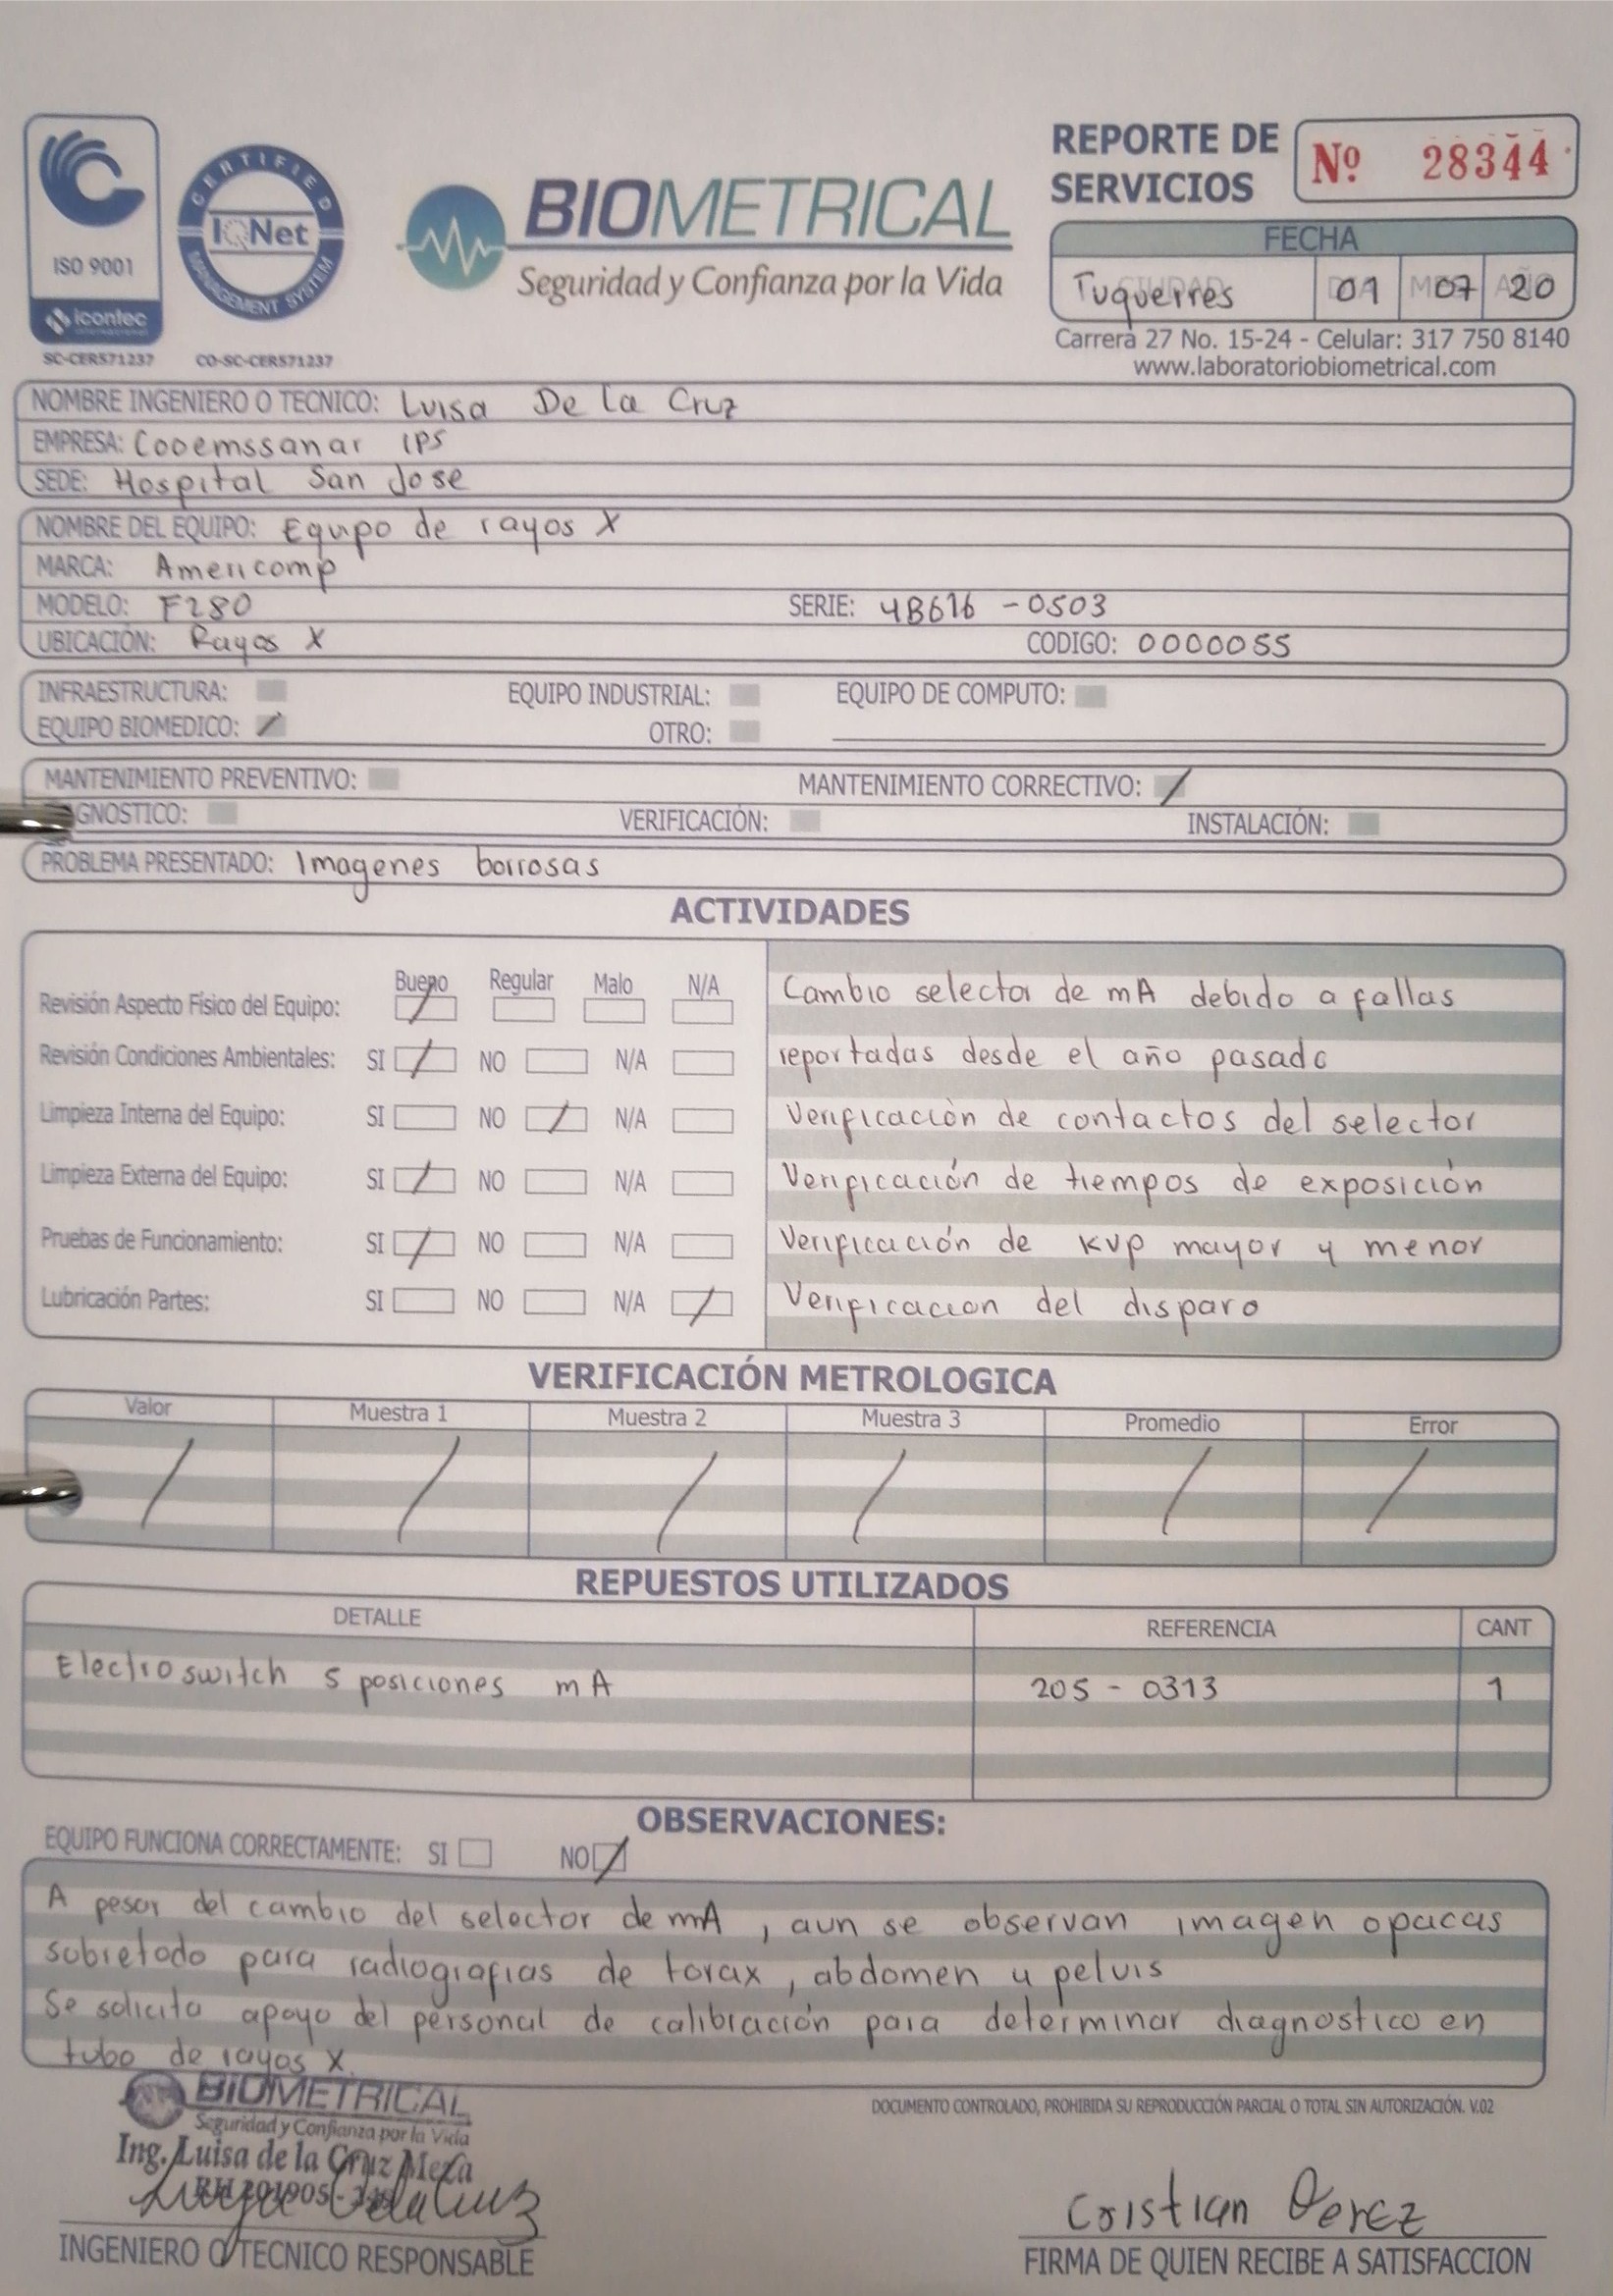 ISO 9001
icontec
internacional
SC-CER571237
CERTIFIED
IQNet
MANAGEMENT SYSTEM
CO-SC-CER571237
BIOMETRICAL
Seguridad y Confianza por la Vida
REPORTE DE
SERVICIOS
Nº 28344
FECHA
CIUDAD DIA MES AÑO
Tuquerres 01 07 20
Carrera 27 No. 15-24 - Celular: 317 750 8140
www.laboratoriobiometrical.com
NOMBRE INGENIERO O TECNICO: Luisa De La Cruz
EMPRESA: Cooemssanar IPS
SEDE: Hospital San Jose
NOMBRE DEL EQUIPO: Equipo de rayos X
MARCA: Americomp
MODELO: F280 SERIE: 4B616 - 0503
UBICACIÓN: Rayos X CODIGO: 0000055
INFRAESTRUCTURA: EQUIPO INDUSTRIAL: EQUIPO DE COMPUTO:
EQUIPO BIOMEDICO: / OTRO:
MANTENIMIENTO PREVENTIVO: MANTENIMIENTO CORRECTIVO: /
GNOSTICO: VERIFICACIÓN: INSTALACIÓN:
PROBLEMA PRESENTADO: Imagenes borrosas
ACTIVIDADES
Bueno Regular Malo N/A
Revisión Aspecto Físico del Equipo: /
Revisión Condiciones Ambientales: SI / NO N/A
Limpieza Interna del Equipo: SI NO / N/A
Limpieza Externa del Equipo: SI / NO N/A
Pruebas de Funcionamiento: SI / NO N/A
Lubricación Partes: SI NO N/A /
Cambio selector de mA debido a fallas
reportadas desde el año pasado
Verificación de contactos del selector
Verificación de tiempos de exposición
Verificación de KVP mayor y menor
Verificacion del disparo
VERIFICACIÓN METROLOGICA
Valor Muestra 1 Muestra 2 Muestra 3 Promedio Error
/ / / / / /
REPUESTOS UTILIZADOS
DETALLE REFERENCIA CANT
Electroswitch 5 posiciones mA 205 - 0313 1
OBSERVACIONES:
EQUIPO FUNCIONA CORRECTAMENTE: SI NO /
A pesar del cambio del selector de mA, aun se observan imagen opacas
sobretodo para radiografias de torax, abdomen y pelvis
Se solicita apoyo del personal de calibración para determinar diagnostico en
tubo de rayos X.
BIOMETRICAL
Seguridad y Confianza por la Vida
Ing. Luisa de la Cruz Meza
DOCUMENTO CONTROLADO, PROHIBIDA SU REPRODUCCIÓN PARCIAL O TOTAL SIN AUTORIZACIÓN. V.02
Cristian Perez
INGENIERO O TECNICO RESPONSABLE
FIRMA DE QUIEN RECIBE A SATISFACCION